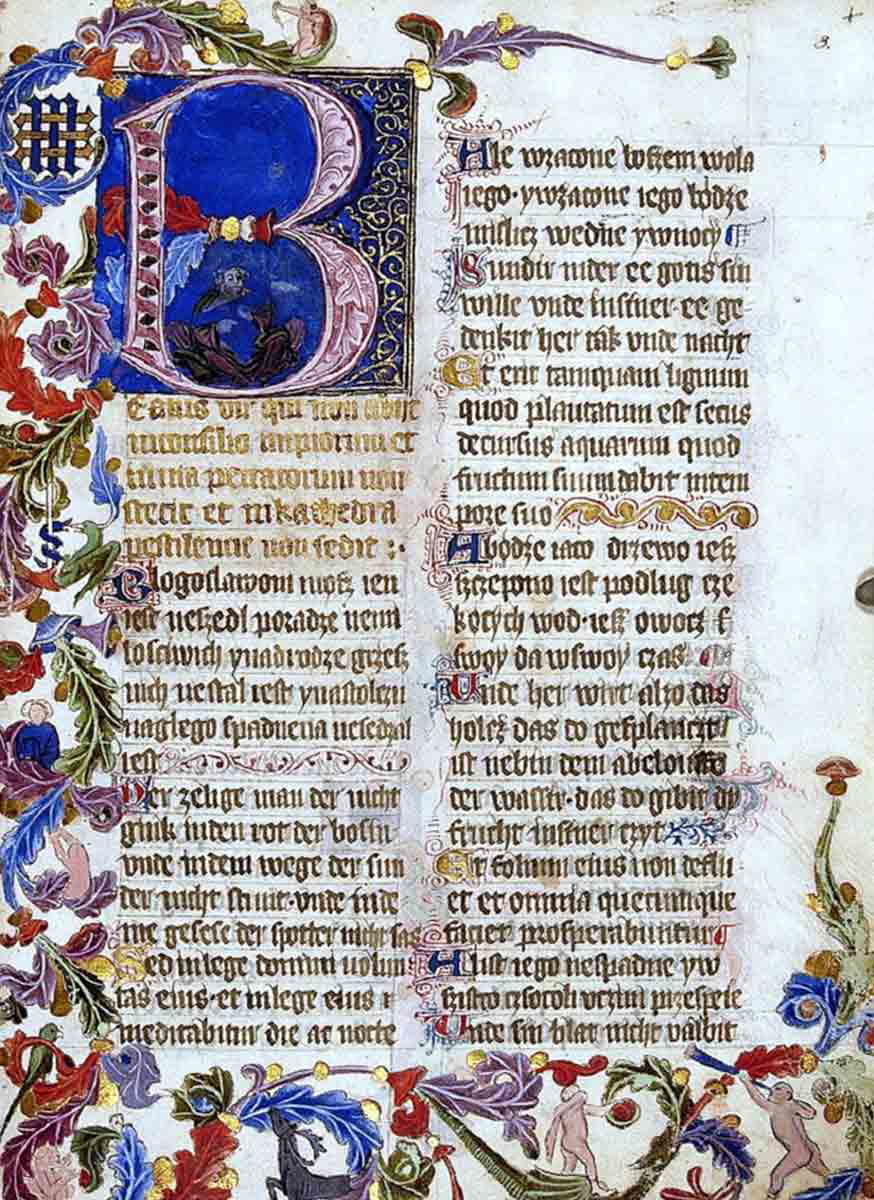 B
eatus vir qui non abijt
in consilio impiorum et
in via peccatorum non
stetit et in kathedra
pestilentie non sedit :·
Blogoslawoni mosz ien
iest neszedl poradze nemi
losciwich ynadrodze grzesz
nich nestal iest ynastolczu
naglego spadnena nesedzal
iest
Der zelige man der nicht
gink in den rot der bosin
vnde in dem wege der sun
der nicht stunt·vnde in de
me gesese der spotter nicht sas
Sed in lege domini volun
tas eius·et in lege eius
meditabitur die ac nocte
3.
Ale wzacone boszem wola
iego·ywzacone iego bodze
mislicz wedne ywnocy
Sundir in der ee gotis sin
wille vnde in siner·ee ge
denkit her tak vnde nacht
Et erit tamquam lignum
quod plantatum est secus
decursus aquarum quod
fructum suum dabit in tem
pore suo
Abodze iaco drzewo iesz
szczepono iest podlug cze
kocych wod·iesz owocz
swoy da wswoy czas
Unde her wirt alzo das
holcz das do gesplanczit
ist nebin dem abelouffe
der wassir·das do gibit dy
frucht in siner czyt
Et folium eius non deflu
et et omnia quecunque
faciet prosperabuntur
Alist iego nespadne yw
szistco czsocoli vczini przespeie
Unde sin blat nicht valbit